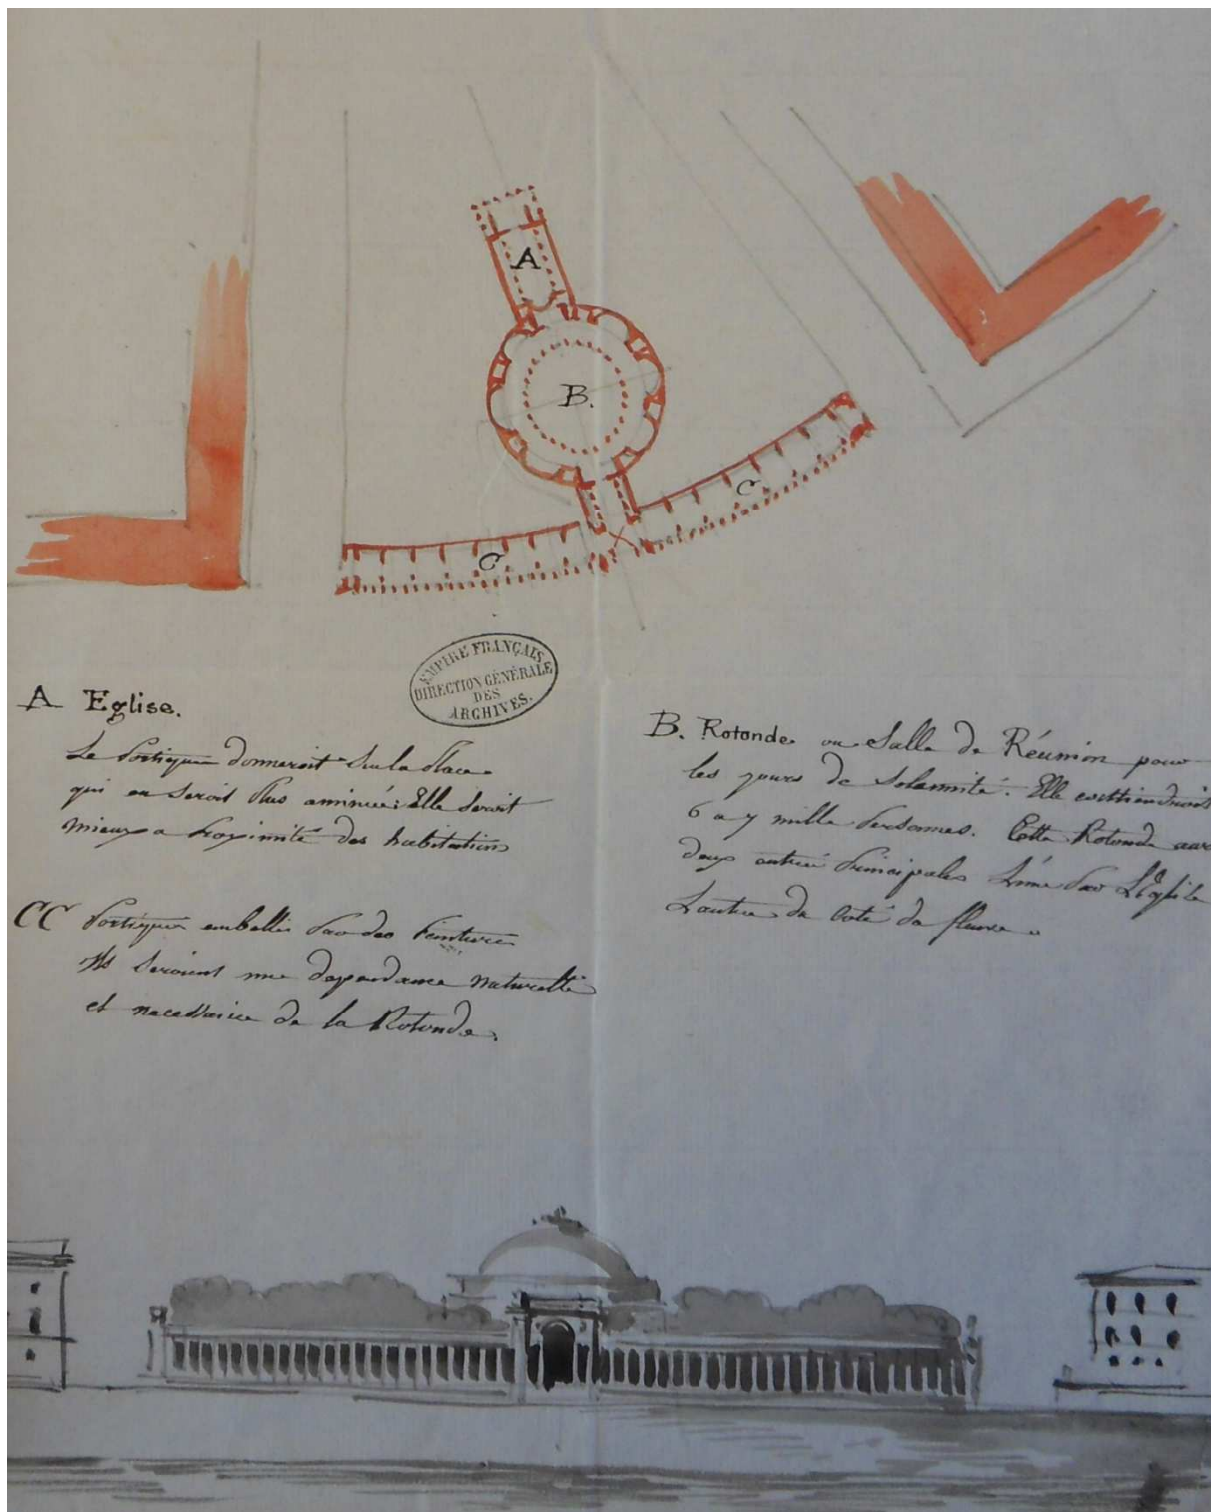 A
B.
C
C
EMPIRE FRANÇAIS
DIRECTION GÉNÉRALE
DES
ARCHIVES.
A Eglise.
Le Portique donneroit Sur la Place
qui en Seroit Plus animée. Elle Seroit
mieux a Proximité des habitations
CC Portiques embellis Par des Peintures
Ils Seroient une dependance naturelle
et necessaire de la Rotonde.
B. Rotonde ou Salle de Réunion pour
les jours de Solemnité. Elle contiendroit
6 a 7 mille Personnes. Cette Rotonde
deux entrée Principales L'une Par L'Eglise
L'autre du Coté du fleuve.